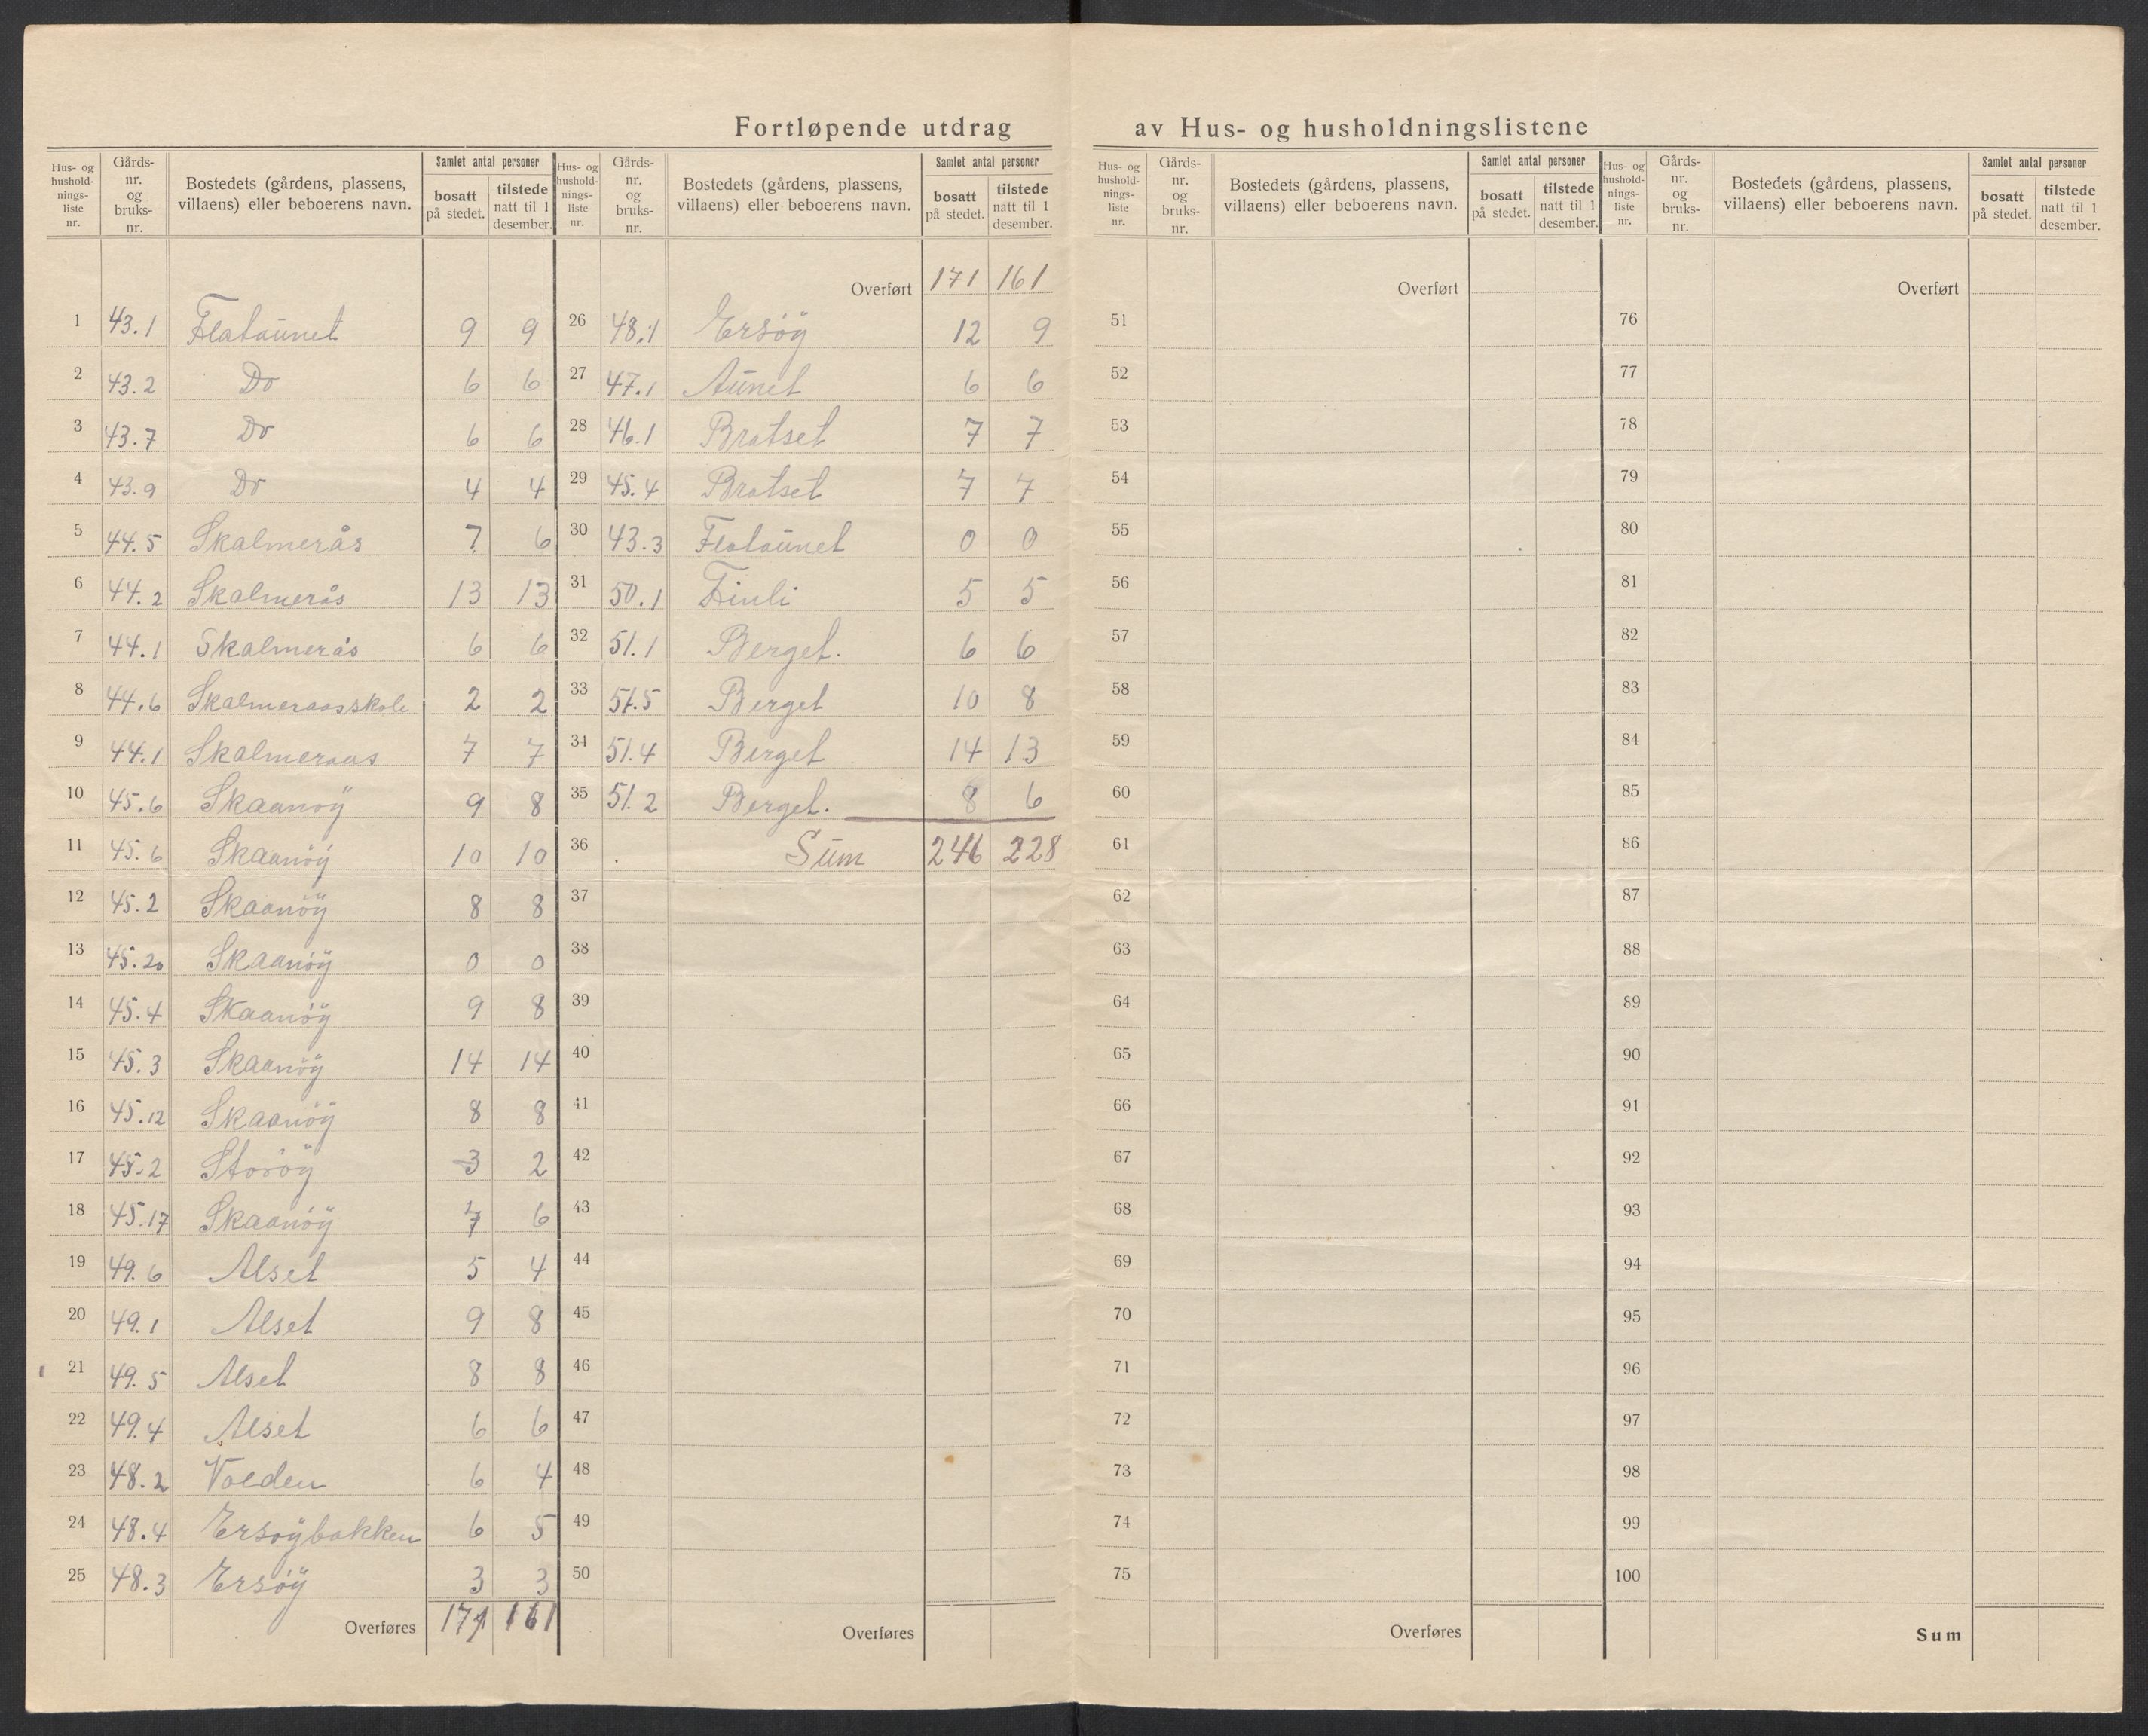 Fortløpende utdrag av Hus- og husholdningslistene
Hus- og husholdnings-liste nr. | Gårds-nr. og bruks-nr. | Bostedets (gårdens, plassens, villaens) eller beboerens navn. | Samlet antal personer bosatt på stedet. | tilstede natt til 1 desember.
1 43.1 Flataunet 9 9
2 43.2 Do 6 6
3 43.7 Do 6 6
4 43.9 Do 4 4
5 44.5 Skalmerås 7 6
6 44.2 Skalmerås 13 13
7 44.1 Skalmerås 6 6
8 44.6 Skalmeraasskole 2 2
9 44.1 Skalmeraas 7 7
10 45.6 Skaanöÿ 9 8
11 45.6 Skaanöÿ 10 10
12 45.2 Skaanöÿ 8 8
13 45.20 Skaanöÿ 0 0
14 45.4 Skaanöÿ 9 8
15 45.3 Skaanöÿ 14 14
16 45.12 Skaanöÿ 8 8
17 45.2 Storöÿ 3 2
18 45.17 Skaanöÿ 7 6
19 49.6 Alset 5 4
20 49.1 Alset 9 8
21 49.5 Alset 8 8
22 49.4 Alset 6 6
23 48.2 Volden 6 4
24 48.4 Ersöÿbakken 6 5
25 48.3 Ersöÿ 3 3
Overføres 171 161
Hus- og husholdnings-liste nr. | Gårds-nr. og bruks-nr. | Bostedets (gårdens, plassens, villaens) eller beboerens navn. | Samlet antal personer bosatt på stedet. | tilstede natt til 1 desember.
Overført 171 161
26 48.1 Ersöÿ 12 9
27 47.1 Aunet 6 6
28 46.1 Bratset 7 7
29 45.4 Bratset 7 7
30 43.3 Flataunet 0 0
31 50.1 Finli 5 5
32 51.1 Berget. 6 6
33 51.5 Berget 10 8
34 51.4 Berget 14 13
35 51.2 Berget. 8 6
36 . Sum 246 228
37
38
39
40
41
42
43
44
45
46
47
48
49
50
Overføres
Hus- og husholdnings-liste nr. | Gårds-nr. og bruks-nr. | Bostedets (gårdens, plassens, villaens) eller beboerens navn. | Samlet antal personer bosatt på stedet. | tilstede natt til 1 desember.
Overført
51
52
53
54
55
56
57
58
59
60
61
62
63
64
65
66
67
68
69
70
71
72
73
74
75
Overføres
Hus- og husholdnings-liste nr. | Gårds-nr. og bruks-nr. | Bostedets (gårdens, plassens, villaens) eller beboerens navn. | Samlet antal personer bosatt på stedet. | tilstede natt til 1 desember.
Overført
76
77
78
79
80
81
82
83
84
85
86
87
88
89
90
91
92
93
94
95
96
97
98
99
100
Sum